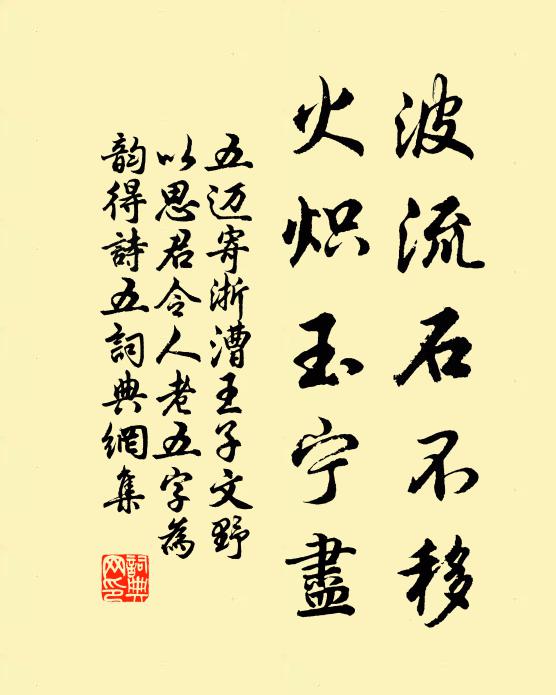 波流石不移
火炽玉宁盡
五迈寄浙漕王子文野
以思君令人老五字為
韵得詩五詞典網集
詞典
网印